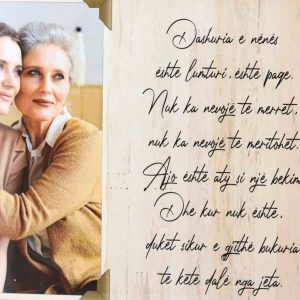 Dashuria e nënës
është lunturi, është paqe.
Nuk ka nevojë të merret,
nuk ka nevojë të meritohet.
Ajo është aty si një bekim
Dhe kur nuk është,
duket sikur e gjithë bukuria
të ketë dalë nga jeta.